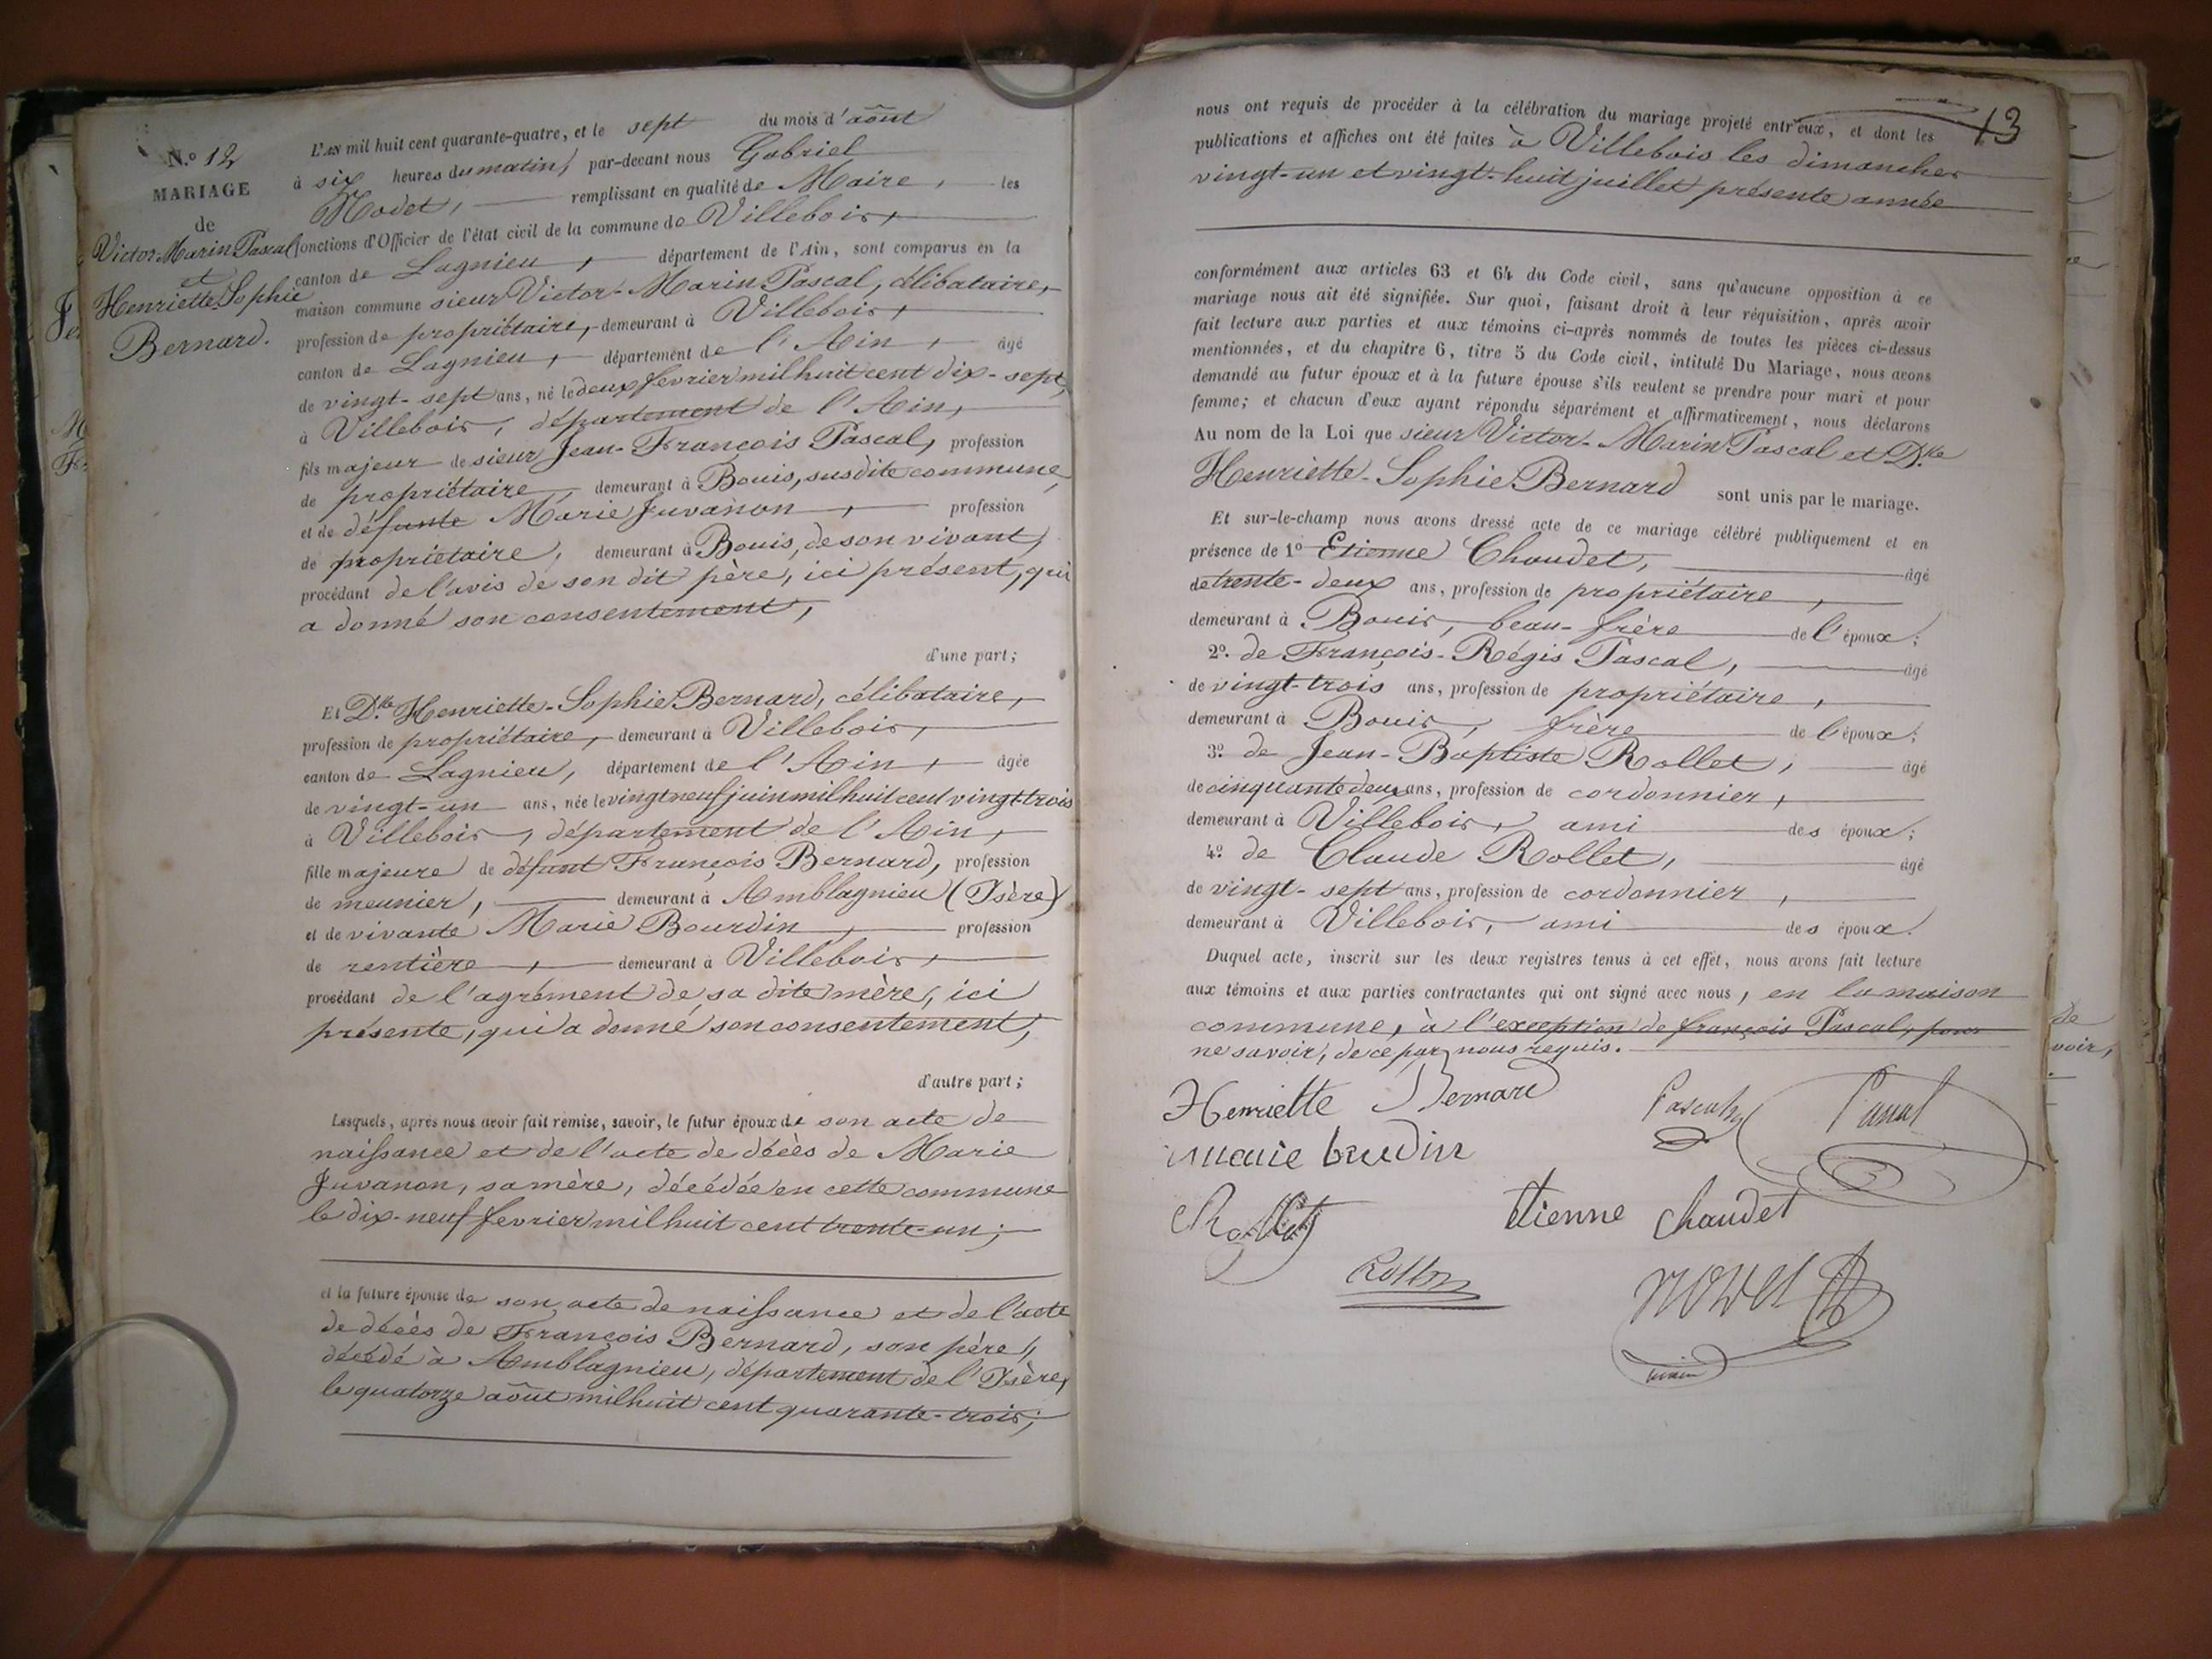 N.o 12
MARIAGE
de
Victor Marin Pascal
et
Henriette Sophie
Bernard.
L'AN mil huit cent quarante-quatre, et le sept du mois d'août
à six heures du matin, par-devant nous Gabriel
Nodet, remplissant en qualité de Maire, les
fonctions d'Officier de l'état civil de la commune de Villebois,
canton de Lagnieu, département de l'Ain, sont comparus en la
maison commune sieur Victor-Marin Pascal, célibataire,
profession de propriétaire, demeurant à Villebois,
canton de Lagnieu, département de l'Ain, âgé
de vingt-sept ans, né le deux fevrier mil huit cent dix-sept,
à Villebois, département de l'Ain,
fils majeur de sieur Jean-François Pascal, profession
de propriétaire, demeurant à Bouis, susdite commune,
et de défunte Marie Juvanon, profession
de propriétaire, demeurant à Bouis, de son vivant,
procédant de l'avis de son dit père, ici présent, qui
a donné son consentement,
d'une part;
Et D.lle Henriette-Sophie Bernard, célibataire,
profession de propriétaire, demeurant à Villebois,
canton de Lagnieu, département de l'Ain, âgée
de vingt-un ans, née le vingt neuf juin mil huit cent vingt-trois
à Villebois, département de l'Ain,
fille majeure de défunt François Bernard, profession
de meunier, demeurant à Amblagnieu (Isère)
et de vivante Marie Bourdin, profession
de rentière, demeurant à Villebois,
procédant de l'agrément de sa dite mère, ici
présente, qui a donné son consentement,
d'autre part;
Lesquels, après nous avoir fait remise, savoir, le futur époux de son acte de
naissance et de l'acte de décès de Marie
Juvanon, sa mère, décédée en cette commune
le dix-neuf fevrier mil huit cent trente-un;
et la future épouse de son acte de naissance et de l'acte
de décès de François Bernard, son père,
décédé à Amblagnieu, département de l'Isère,
le quatorze août mil huit cent quarante-trois;
13
nous ont requis de procéder à la célébration du mariage projeté entr'eux, et dont les
publications et affiches ont été faites à Villebois les dimanches
vingt-un et vingt-huit juillet présente année
conformément aux articles 63 et 64 du Code civil, sans qu'aucune opposition à ce
mariage nous ait été signifiée. Sur quoi, faisant droit à leur réquisition, après avoir
fait lecture aux parties et aux témoins ci-après nommés de toutes les pièces ci-dessus
mentionnées, et du chapitre 6, titre 5 du Code civil, intitulé Du Mariage, nous avons
demandé au futur époux et à la future épouse s'ils veulent se prendre pour mari et pour
femme; et chacun d'eux ayant répondu séparément et affirmativement, nous déclarons
Au nom de la Loi que sieur Victor-Marin Pascal et D.lle
Henriette-Sophie Bernard sont unis par le mariage.
Et sur-le-champ nous avons dressé acte de ce mariage célébré publiquement et en
présence de 1o Etienne Chaudet, âgé
de trente-deux ans, profession de propriétaire,
demeurant à Bouis, beau-frère de l'époux;
2o. de François-Régis Pascal, âgé
de vingt-trois ans, profession de propriétaire,
demeurant à Bouis, frère de l'époux;
3o. de Jean-Baptiste Rollet, âgé
de cinquante deux ans, profession de cordonnier,
demeurant à Villebois, ami des époux;
4o. de Claude Rollet, âgé
de vingt-sept ans, profession de cordonnier,
demeurant à Villebois, ami des époux.
Duquel acte, inscrit sur les deux registres tenus à cet effet, nous avons fait lecture
aux témoins et aux parties contractantes qui ont signé avec nous, en la maison
commune, à l'exception de françois Pascal, pour
ne savoir, de ce par nous requis.
Henriette Bernard Pascal
marie burdin
Rollet Etienne Chaudet
Nodet
maire
de
voir,